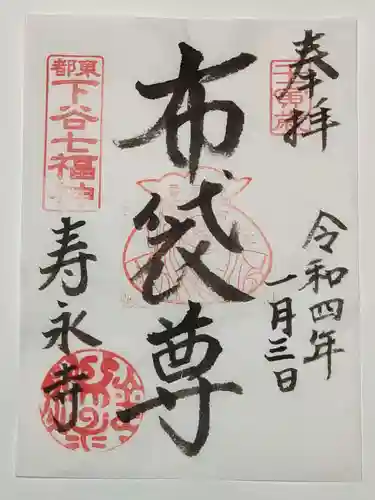 奉拝
令和四年
一月三日
布袋尊
東都
下谷七福神
寿永寺